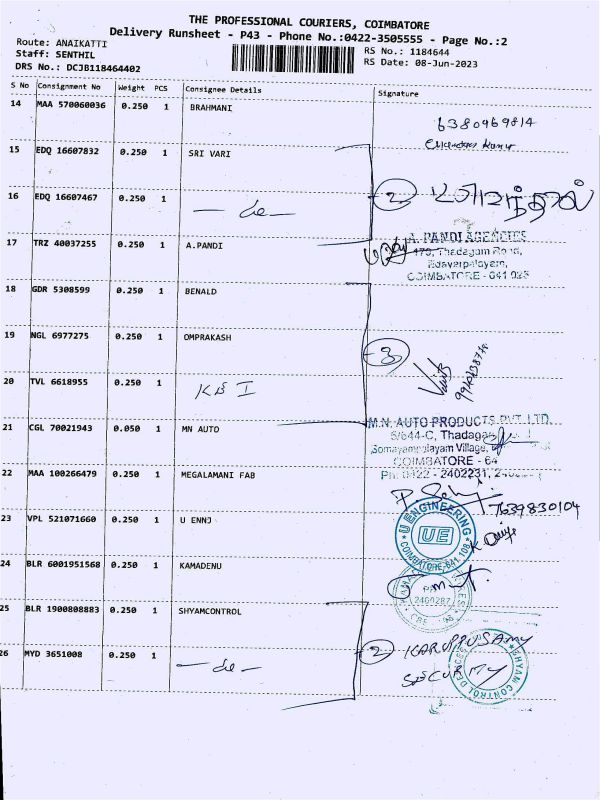 THE PROFESSIONAL COURIERS, COIMBATORE
Delivery Runsheet - P43 - Phone No.:0422-3505555 - Page No.:2
Route: ANAIKATTI
Staff: SENTHIL
DRS No.: DCJB118464402
RS No.: 1184644
RS Date: 08-Jun-2023
S No Consignment No Weight PCS Consignee Details Signature
14 MAA 570060036 0.250 1 BRAHMANI
6380469814
15 EDQ 16607832 0.250 1 SRI VARI
16 EDQ 16607467 0.250 1 — do — 2
17 TRZ 40037255 0.250 1 A.PANDI
A. PANDI AGENCIES
479, Thadagam Road,
Edayarpalayam,
COIMBATORE - 641 025
18 GDR 5308599 0.250 1 BENALD
19 NGL 6977275 0.250 1 OMPRAKASH
3
20 TVL 6618955 0.250 1 KBI
21 CGL 70021943 0.050 1 MN AUTO
M.N. AUTO PRODUCTS PVT. LTD.
5/644-C, Thadagam
Somayampalayam Village,
COIMBATORE - 64
Ph: 0422 - 2402231,
22 MAA 100266479 0.250 1 MEGALAMANI FAB
7639830104
23 VPL 521071660 0.250 1 U ENNJ
U ENGINEERING
UE
COIMBATORE-641 108
24 BLR 6001951568 0.250 1 KAMADENU
25 BLR 1900808883 0.250 1 SHYAMCONTROL
2 KARUPPUSAMY
SECURITY
SHYAM CONTROL DEVICES
26 MYD 3651008 0.250 1 — do —